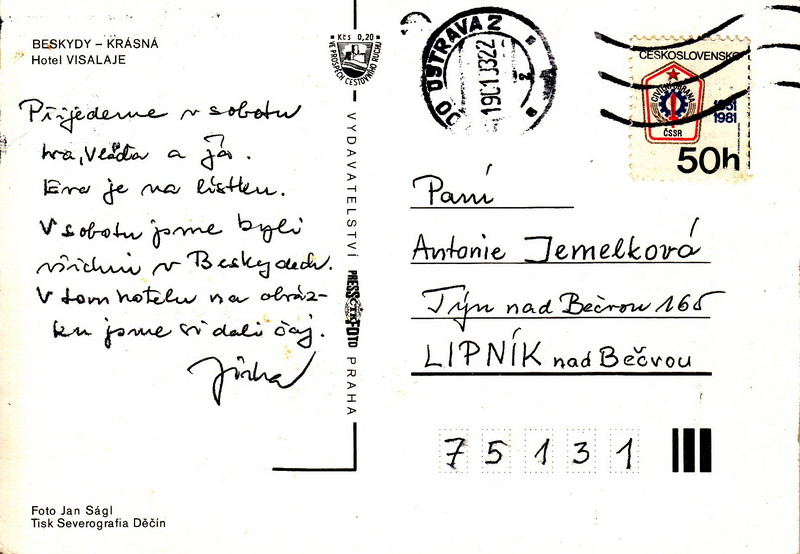 BESKYDY – KRÁSNÁ
Hotel VISALAJE
Přijedeme v sobotu
Iva, Vláďa a Já.
Eva je na lístku.
V sobotu jsme byli
všichni v Beskydech.
V tom hotelu na obráz-
ku jsme si dali čaj.
Jirka
Foto Jan Ságl
Tisk Severografia Děčín
Kčs 0,20
VE PROSPĚCH CESTOVNÍHO RUCHU
VYDAVATELSTVÍ PRESSFOTO PRAHA
ČTK
OSTRAVA 2
ČESKOSLOVENSKO
CIVILNÍ OBRANA
ČSSR
1951
1981
50h
Paní
Antonie Jemelková
Týn nad Bečvou 165
LIPNÍK nad Bečvou
75131